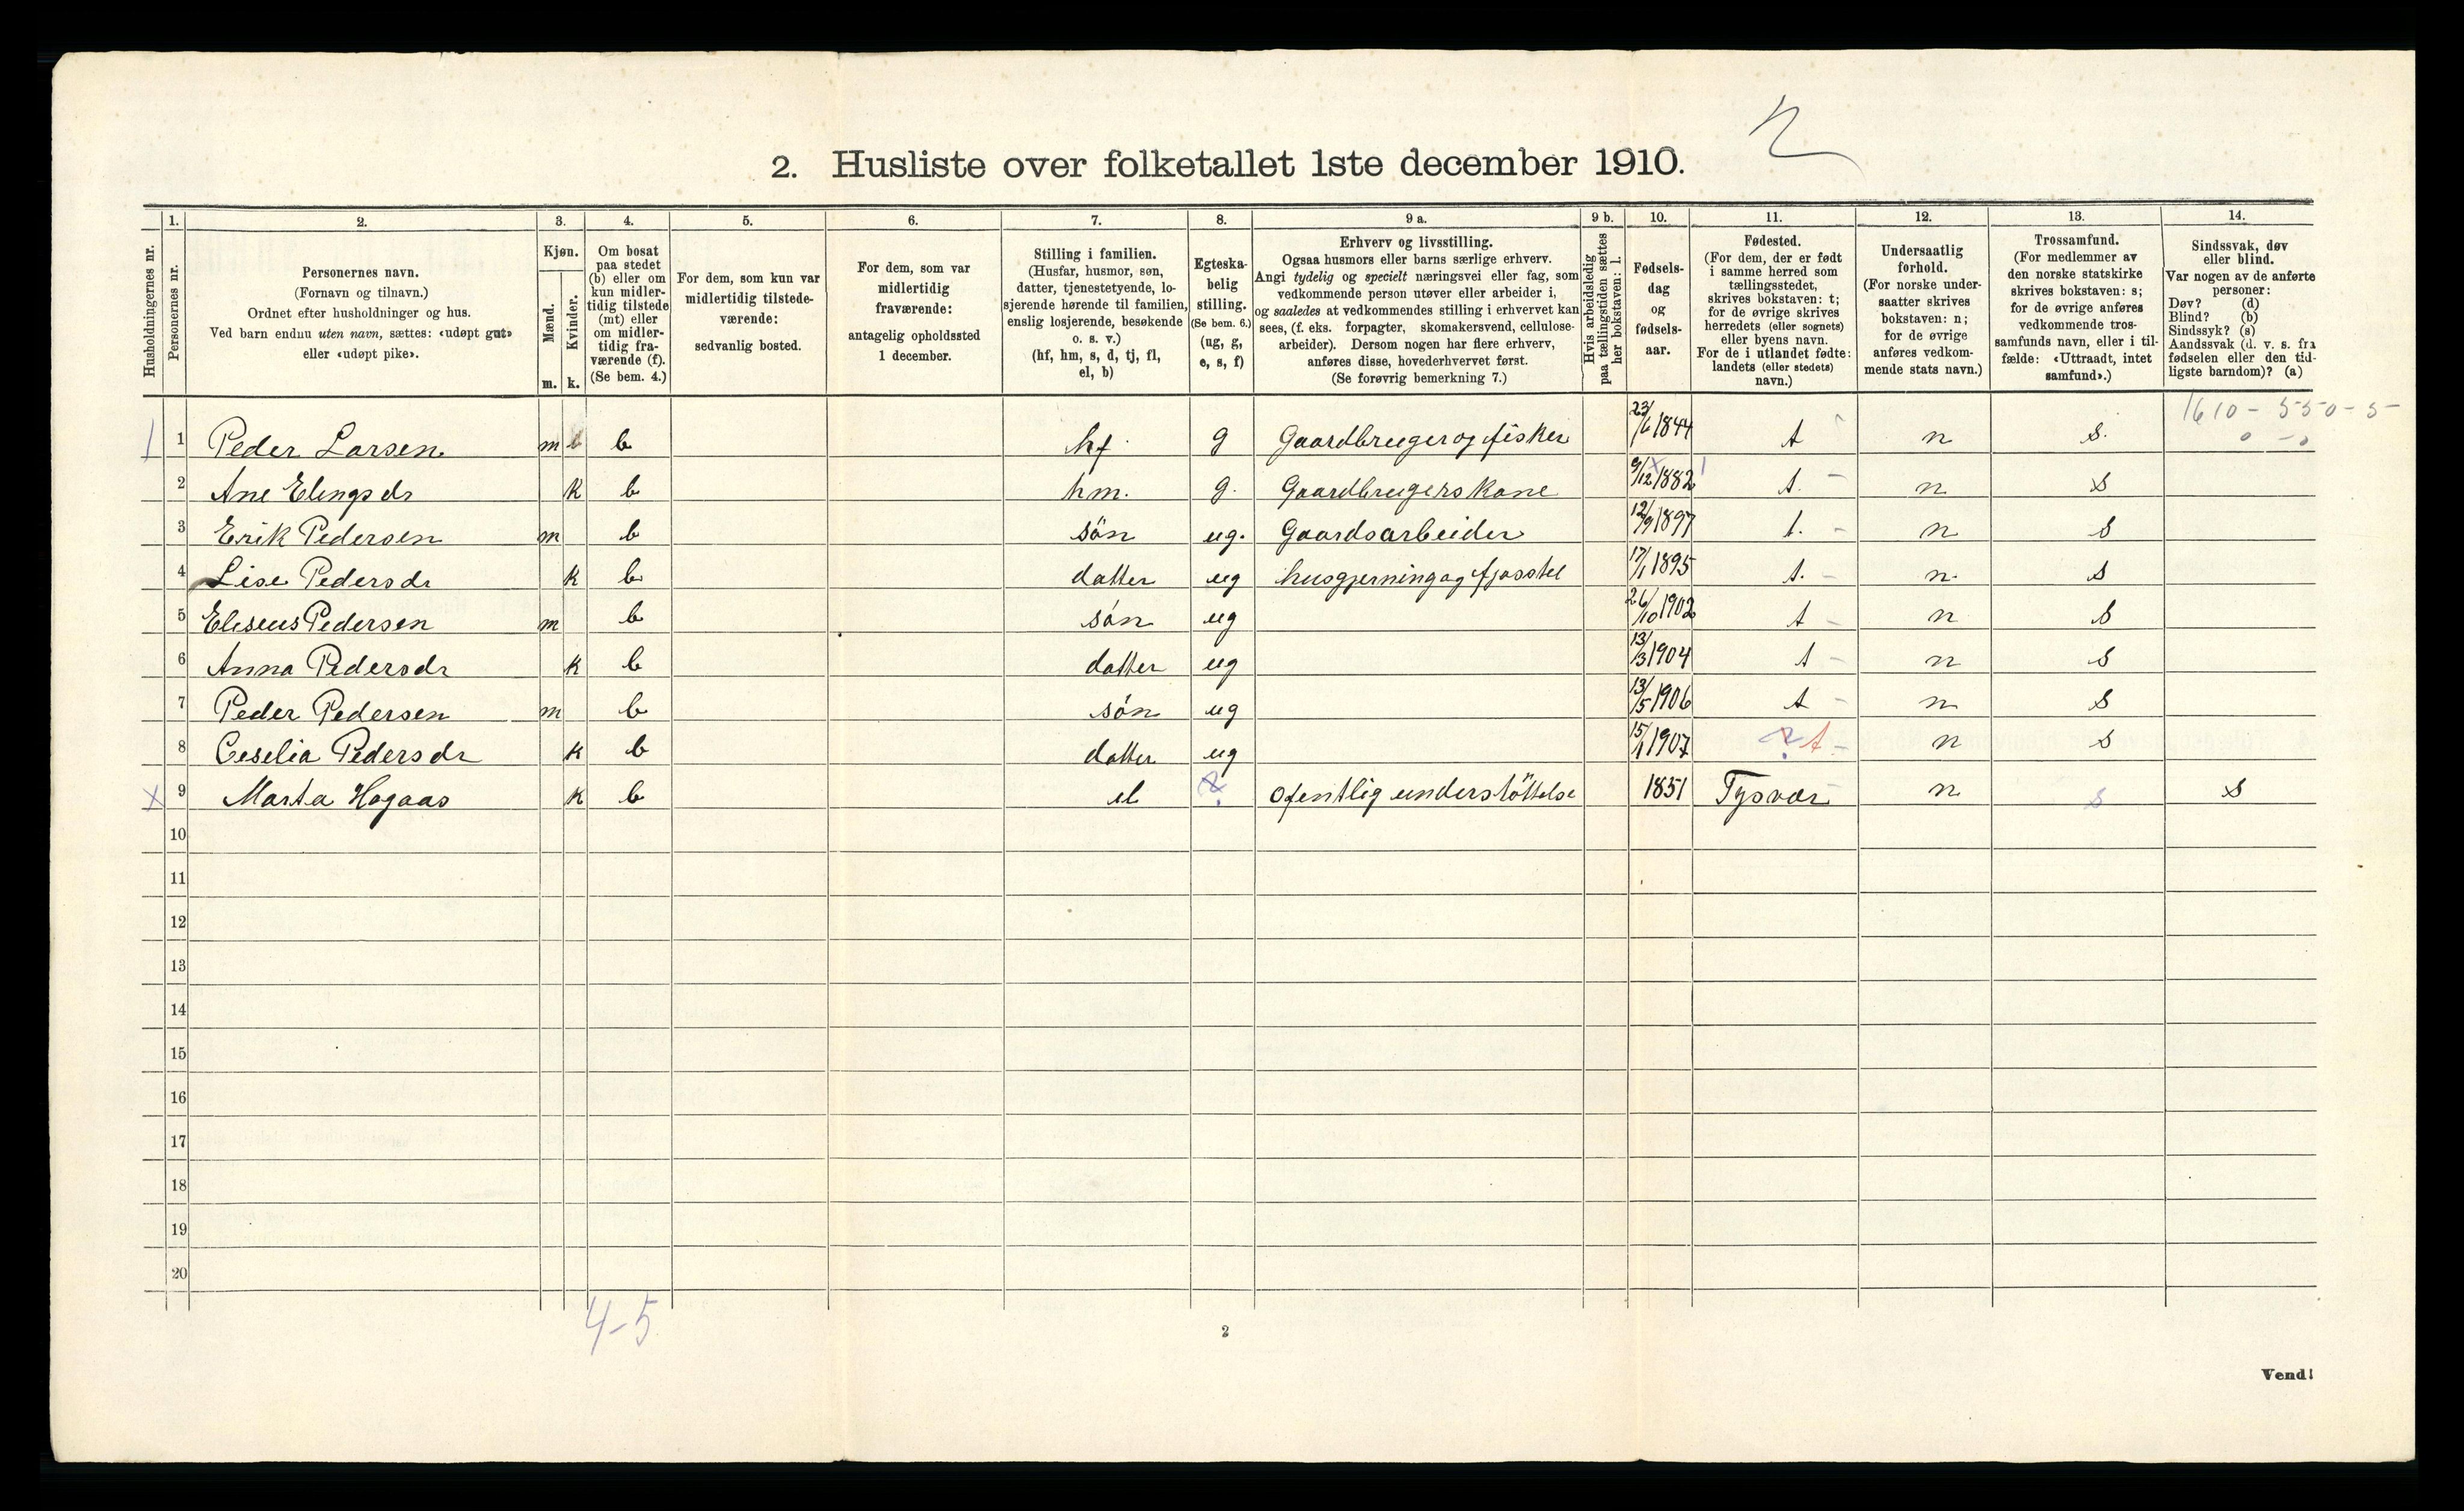 2. Husliste over folketallet 1ste december 1910.
Husholdningernes nr.
1. Personernes nr.
2. Personernes navn.
(Fornavn og tilnavn.)
Ordnet efter husholdninger og hus.
Ved barn endnu uten navn, sættes: «udøpt gut»
eller «udøpt pike».
3. Kjøn.
Mænd. m.
Kvinder. k.
4. Om bosat
paa stedet
(b) eller om
kun midler-
tidig tilstede
(mt) eller
om midler-
tidig fra-
værende (f).
(Se bem. 4.)
5. For dem, som kun var
midlertidig tilstede-
værende:
sedvanlig bosted.
6. For dem, som var
midlertidig
fraværende:
antagelig opholdssted
1 december.
7. Stilling i familien.
(Husfar, husmor, søn,
datter, tjenestetyende, lo-
sjerende hørende til familien,
enslig losjerende, besøkende
o. s. v.)
(hf, hm, s, d, tj, fl,
el, b)
8. Egteska-
belig
stilling.
(Se bem. 6.)
(ug, g,
e, s, f)
9 a. Erhverv og livsstilling.
Ogsaa husmors eller barns særlige erhverv.
Angi tydelig og specielt næringsvei eller fag, som
vedkommende person utøver eller arbeider i,
og saaledes at vedkommendes stilling i erhvervet kan
sees, (f. eks. forpagter, skomakersvend, cellulose-
arbeider). Dersom nogen har flere erhverv,
anføres disse, hovederhvervet først.
(Se forøvrig bemerkning 7.)
9 b. Hvis arbeidsledig
paa tællingstiden sættes
her bokstaven: l.
10. Fødsels-
dag
og
fødsels-
aar.
11. Fødested.
(For dem, der er født
i samme herred som
tællingsstedet,
skrives bokstaven: t;
for de øvrige skrives
herredets (eller sognets)
eller byens navn.
For de i utlandet fødte:
landets (eller stedets)
navn.)
12. Undersaatlig
forhold.
(For norske under-
saatter skrives
bokstaven: n;
for de øvrige
anføres vedkom-
mende stats navn.)
13. Trossamfund.
(For medlemmer av
den norske statskirke
skrives bokstaven: s;
for de øvrige anføres
vedkommende tros-
samfunds navn, eller i til-
fælde: «Uttraadt, intet
samfund».)
14. Sindssvak, døv
eller blind.
Var nogen av de anførte
personer:
Døv? (d)
Blind? (b)
Sindssyk? (s)
Aandssvak (d. v. s. fra
fødselen eller den tid-
ligste barndom)? (a)
1610 - 550 - 5 -
1 1 Peder Larsen m b hf g Gaardbruger og fisker 23/6 1844 t n s.
2 Ane Elingsdr k b hm. g. Gaardbrugerskone 9/12 1882 t. - n s
3 Erik Pedersen m b søn ug. Gaardsarbeider 12/9 1897 t. - n s
4 Lise Pedersdr k b datter ug husgjerning og fjosstel 17/1 1895 t. - n. s
5 Eliseus Pedersen m b søn ug 26/10 1902 t - n s
6 Anna Pedersdr k b datter ug 13/3 1904 t - n s
7 Peder Pedersen m b søn ug 13/5 1906 t - n s
8 Ceselia Pedersdr k b datter ug 15/1 1907 ? t - n s
x 9 Marta Hogaas k b el ? ofentlig understöttelse 1851 Tysvær n s s
10
11
12
13
14
15
16
17
18
19
20
4-5
2
Vend!